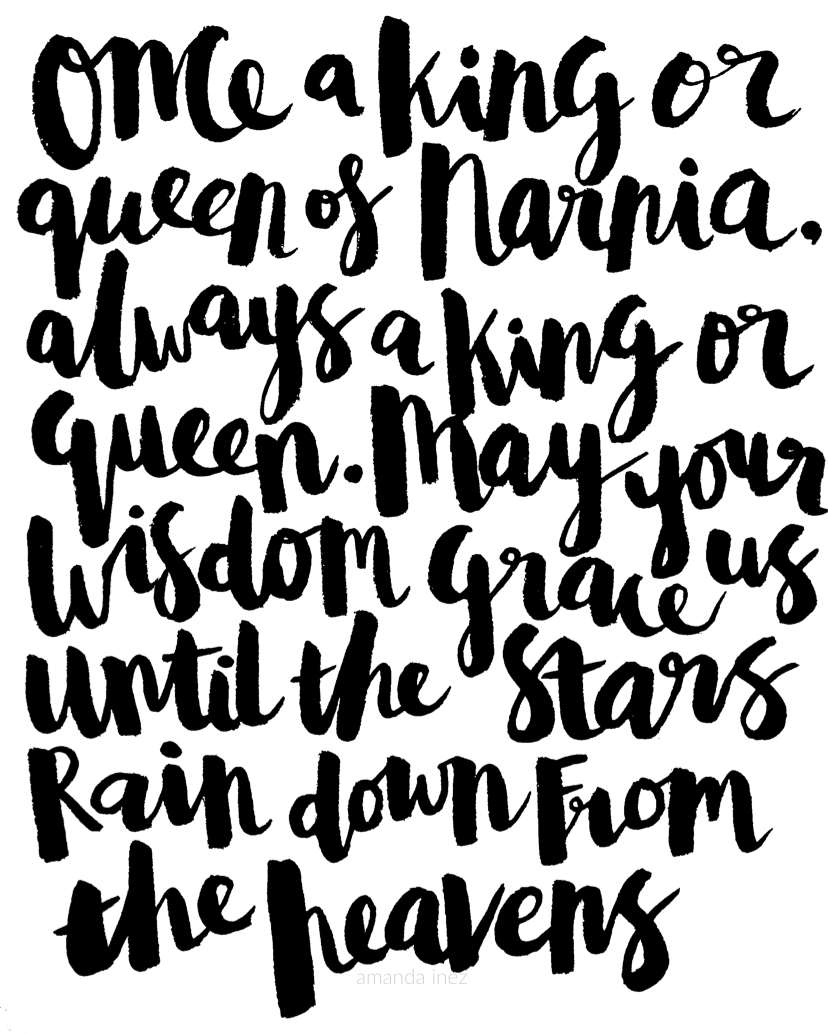 Once a king or
queen of Narnia.
always a king or
queen. May your
Wisdom Grace us
until the Stars
Rain down From
the heavens
amanda inez